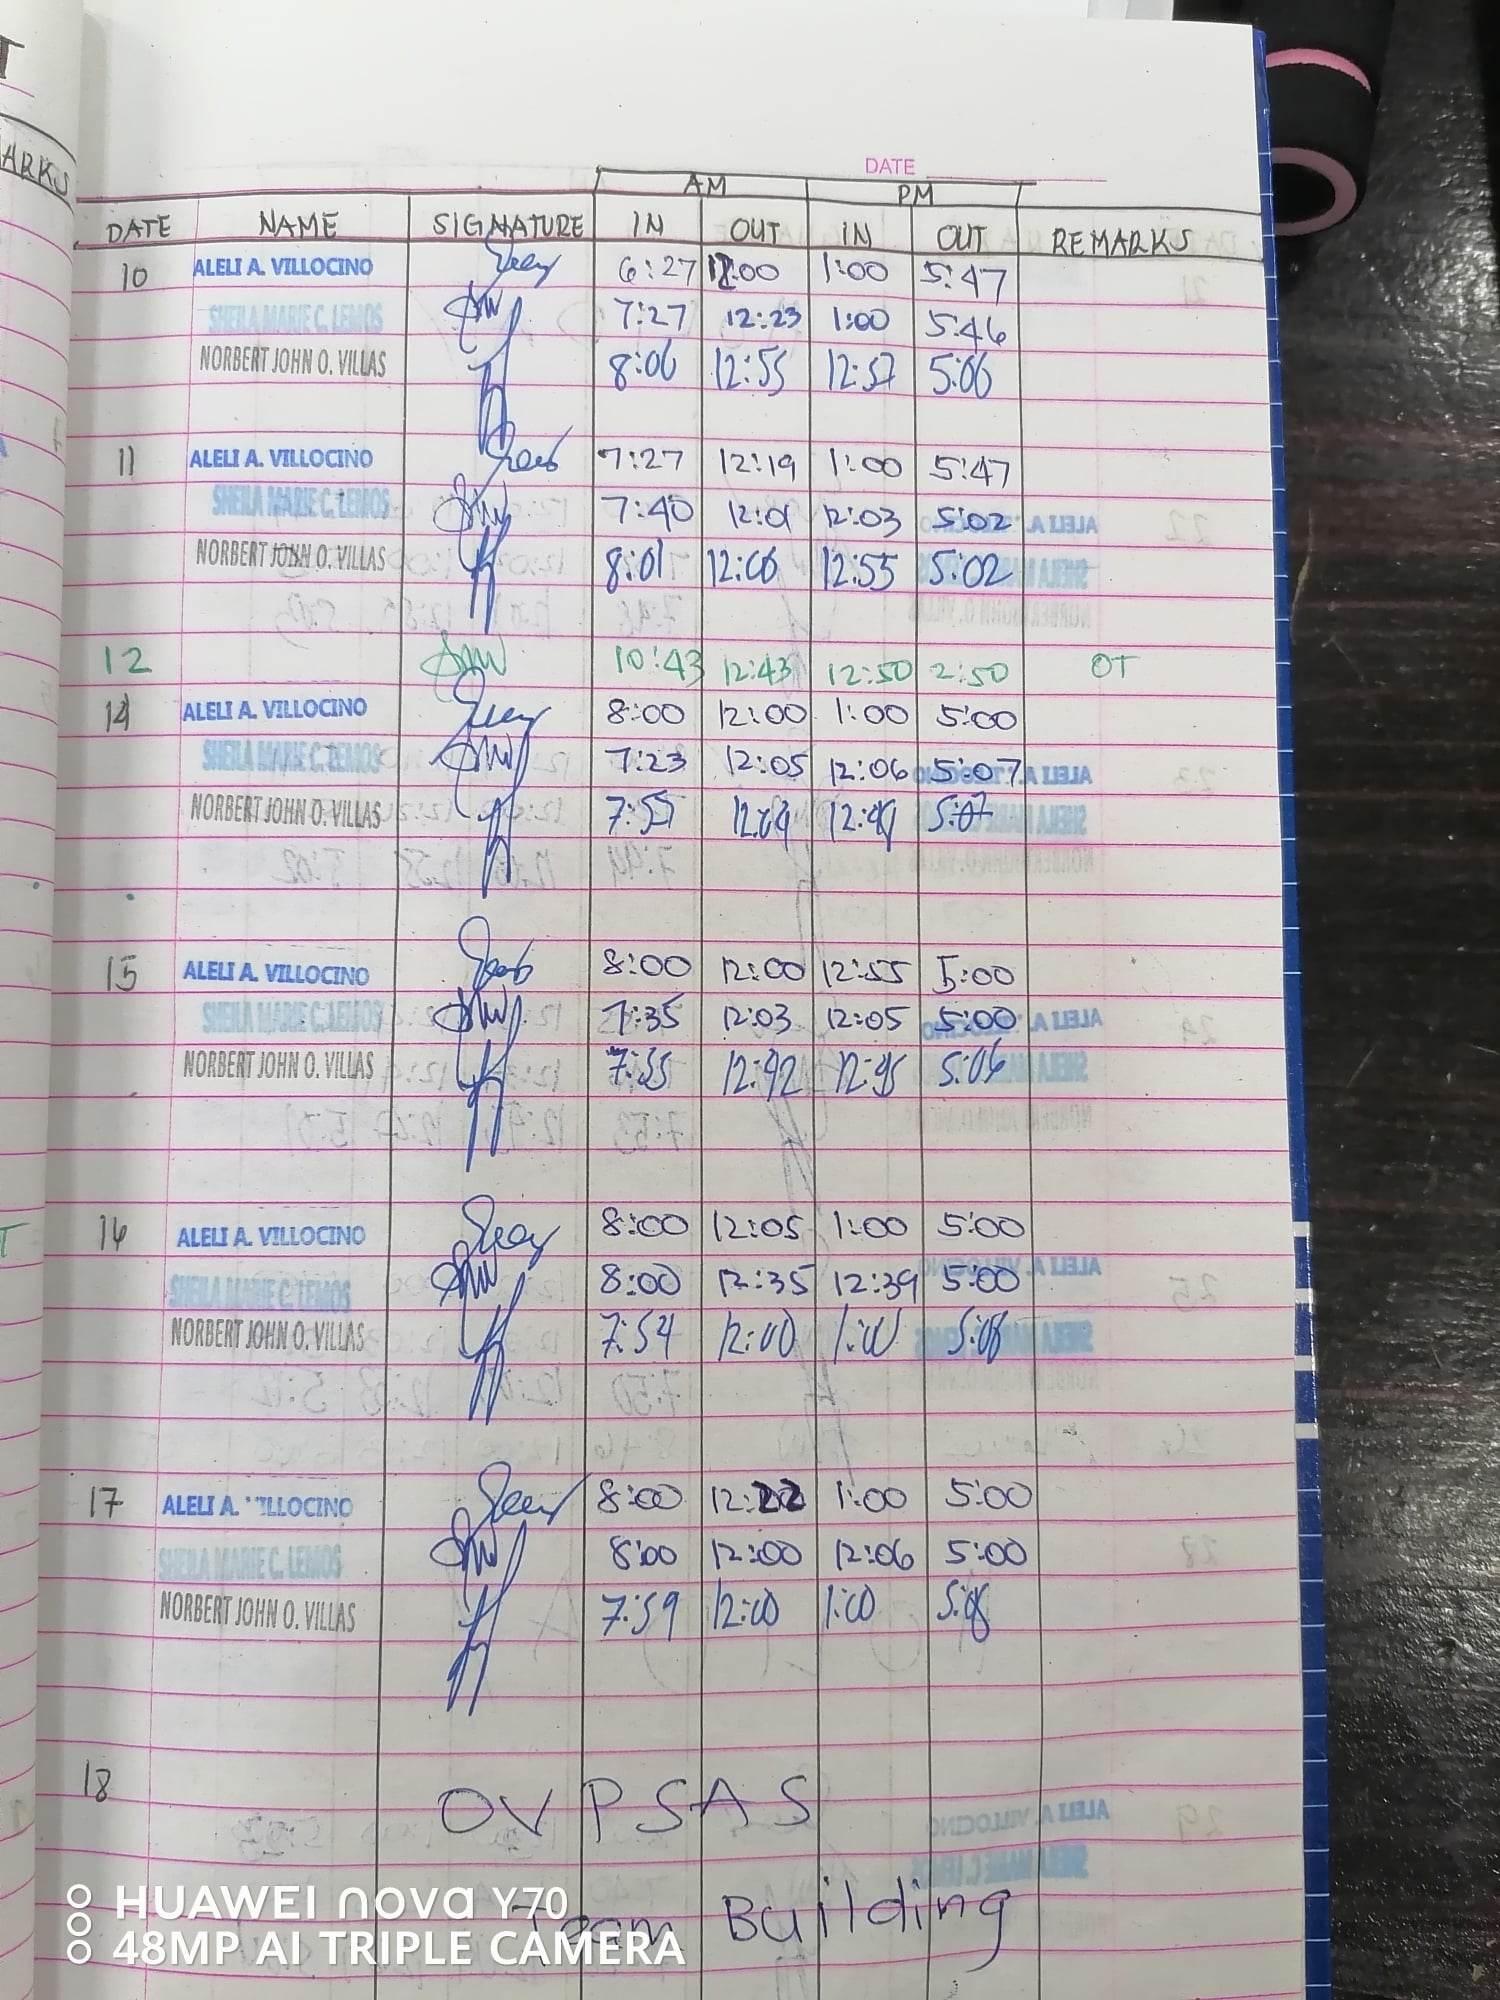 ARKS
DATE
AM PM
DATE NAME SIGNATURE IN OUT IN OUT REMARKS
10 ALELI A. VILLOCINO 6:27 12:00 1:00 5:47
SHEILA MARIE C. LEMOS 7:27 12:23 1:00 5:46
NORBERT JOHN O. VILLAS 8:06 12:55 12:57 5:06
11 ALELI A. VILLOCINO 7:27 12:19 1:00 5:47
SHEILA MARIE C. LEMOS 7:40 12:01 12:03 5:02
NORBERT JOHN O. VILLAS 8:01 12:06 12:55 5:02
12 10:43 12:43 12:50 2:50 OT
14 ALELI A. VILLOCINO 8:00 12:00 1:00 5:00
SHEILA MARIE C. LEMOS 7:23 12:05 12:06 5:07
NORBERT JOHN O. VILLAS 7:55 5:07
15 ALELI A. VILLOCINO 8:00 12:00 12:55 5:00
SHEILA MARIE C. LEMOS 7:35 12:03 12:05 5:00
NORBERT JOHN O. VILLAS 7:35 12:42 12:45 5:06
16 ALELI A. VILLOCINO 8:00 12:05 1:00 5:00
SHEILA MARIE C. LEMOS 8:00 12:35 12:39 5:00
NORBERT JOHN O. VILLAS 7:54 12:00 1:00 5:08
17 ALELI A. VILLOCINO 8:00 12:22 1:00 5:00
SHEILA MARIE C. LEMOS 8:00 12:00 12:06 5:00
NORBERT JOHN O. VILLAS 7:59 12:00 1:00 5:08
18 OVPSAS
Team Building
HUAWEI nova Y70
48MP AI TRIPLE CAMERA